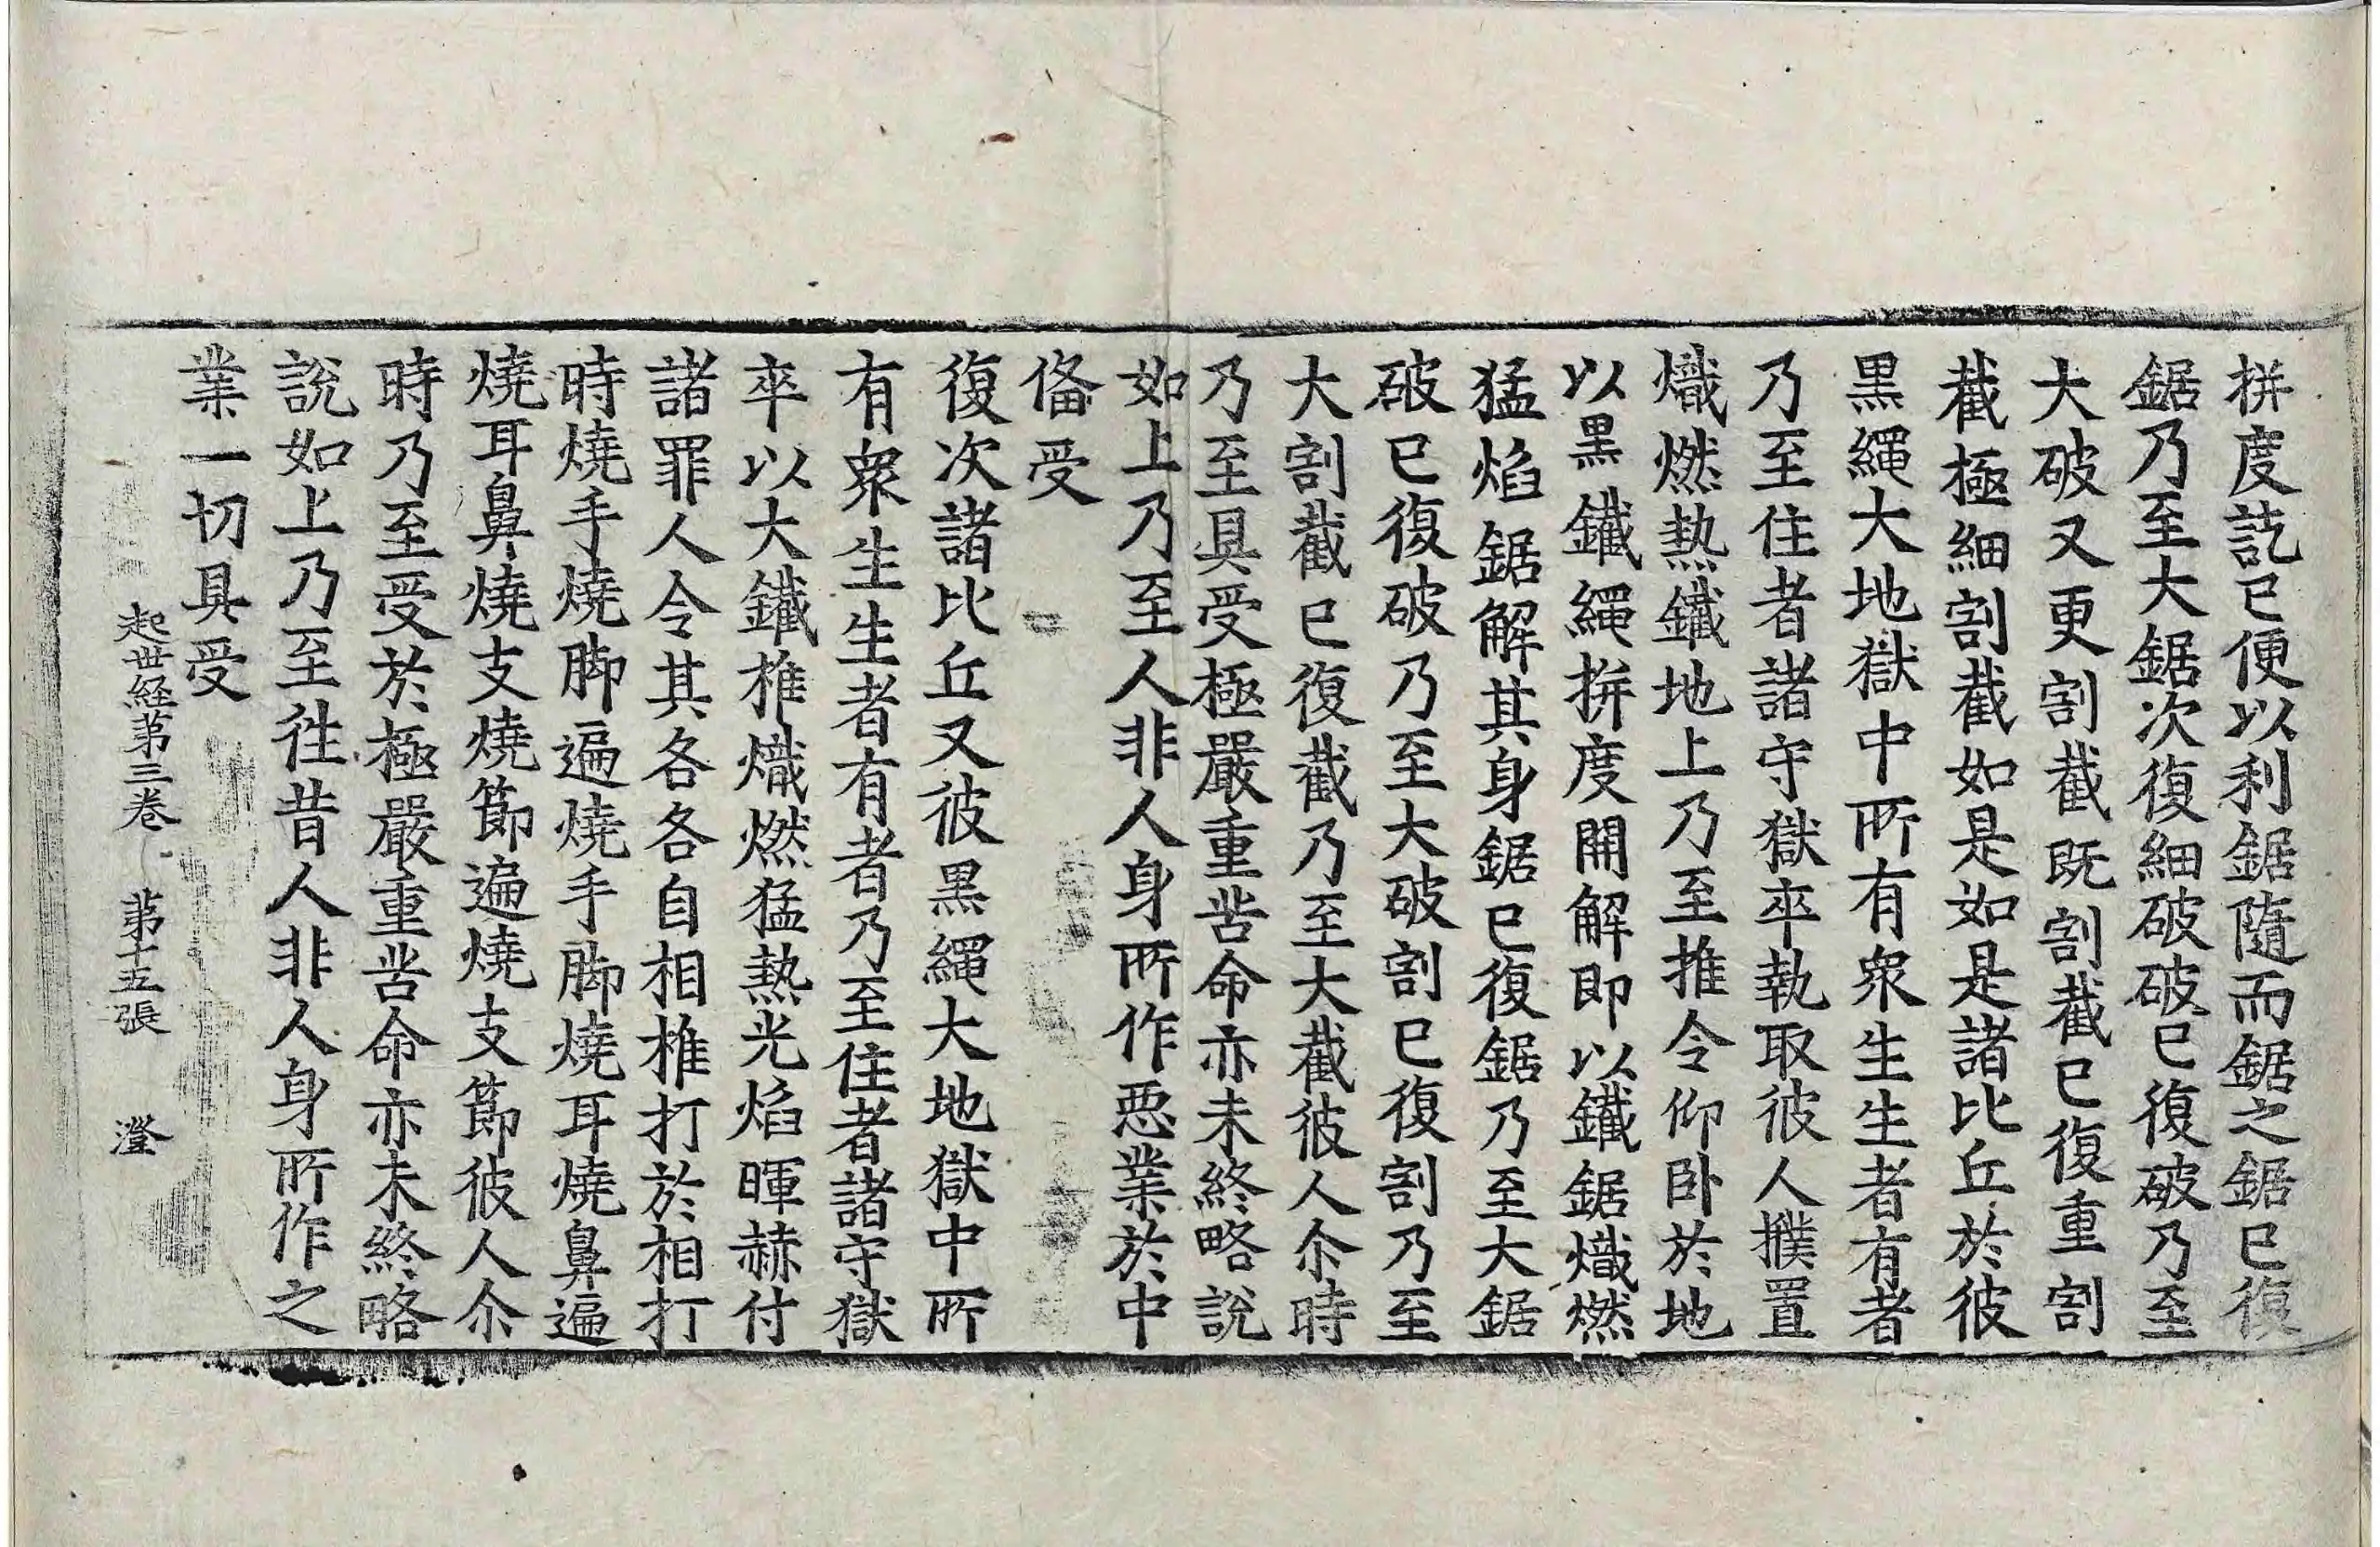 拼度訖已便以利鋸隨而鋸之鋸已復
鋸乃至大鋸次復細破破已復破乃至
大破又更割截既割截已復重割
截極細割截如是如是諸比丘於彼
黒繩大地獄中所有衆生生者有者
乃至住者諸守獄卒執取彼人撲置
熾燃熱鐵地上乃至推令仰卧於地
以黒鐵繩拼度開解即以鐵鋸熾燃
猛焰鋸解其身鋸已復鋸乃至大鋸
破已復破乃至大破割已復割乃至
大割截已復截乃至大截彼人尒時
乃至具受極嚴重苦命亦未終略說
如上乃至人非人身所作惡業於中
俻受
復次諸比丘又彼黒繩大地獄中所
有衆生生者有者乃至住者諸守獄
卒以大鐵椎熾燃猛熱光焰暉赫付
諸罪人令其各各自相椎打於相打
時燒手燒脚遍燒手脚燒耳燒鼻遍
燒耳鼻燒支燒節遍燒支節彼人尒
時乃至受於極嚴重苦命亦未終略
說如上乃至徃昔人非人身所作之
業一切具受
起世経第三卷 第十五張 澄